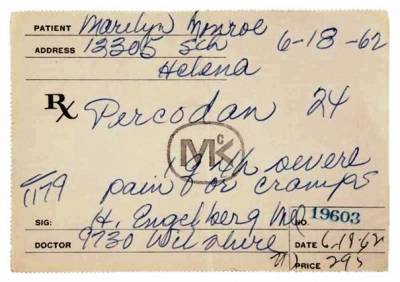 PATIENT Marilyn Monroe
ADDRESS 12305 5th 6-18-62
Helena
Rx Percodan 24
McK
q4h severe
pain & or cramps
SIG: H. Engelberg MD NO. 19603
DOCTOR 9730 Wilshire DATE 6-19-62
PRICE 295